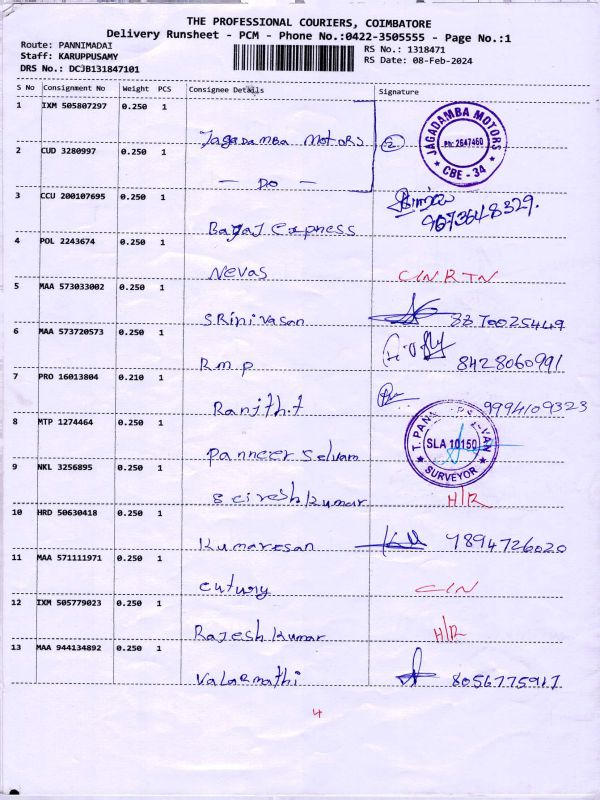 THE PROFESSIONAL COURIERS, COIMBATORE
Delivery Runsheet - PCM - Phone No.:0422-3505555 - Page No.:1
Route: PANNIMADAI RS No.: 1318471
Staff: KARUPPUSAMY RS Date: 08-Feb-2024
DRS No.: DCJB131847101
S No Consignment No Weight PCS Consignee Details Signature
1 IXM 505807297 0.250 1 Jagadamba Motors
JAGADAMBA MOTORS Ph: 2647460 CBE - 34
2 CUD 3280997 0.250 1 — DO —
3 CCU 200107695 0.250 1 Bagaj Express 9073648329.
4 POL 2243674 0.250 1 Nevas C/N RTN
5 MAA 573033002 0.250 1 SRinivasan 8870025449
6 MAA 573720573 0.250 1 R m p 8428060991
7 PRO 16013804 0.210 1 Ranjith.t 9994109323
8 MTP 1274464 0.250 1 Panneer Selvam
SLA 10150 SURVEYOR
9 NKL 3256895 0.250 1 kumar H/R
10 HRD 50630418 0.250 1 Kumaresan 9894726020
11 MAA 571111971 0.250 1 C/N
12 IXM 505779023 0.250 1 Rajesh kumar H/R
13 MAA 944134892 0.250 1 Valarmathi 8056775917
4